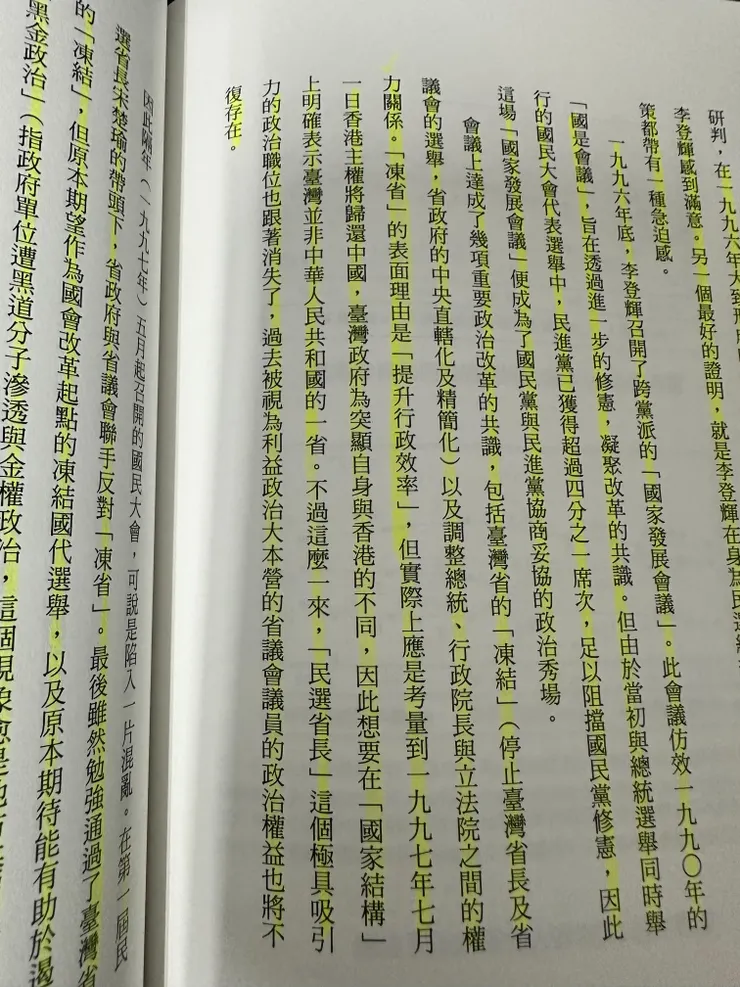 研判，在一九九六年大致
李登輝感到滿意。另一個最好的證明，就是李登輝在身為民選總
策都帶有一種急迫感。
一九九六年底，李登輝召開了跨黨派的「國家發展會議」。此會議仿效一九九〇年的
「國是會議」，旨在透過進一步的修憲，凝聚改革的共識。但由於當初與總統選舉同時舉
行的國民大會代表選舉中，民進黨已獲得超過四分之一席次，足以阻擋國民黨修憲，因此
這場「國家發展會議」便成為了國民黨與民進黨協商妥協的政治秀場。
會議上達成了幾項重要政治改革的共識，包括臺灣省的「凍結」（停止臺灣省長及省
議會的選舉，省政府的中央直轄化及精簡化）以及調整總統、行政院長與立法院之間的權
力關係。「凍省」的表面理由是「提升行政效率」，但實際上應是考量到一九九七年七月
一日香港主權將歸還中國，臺灣政府為突顯自身與香港的不同，因此想要在「國家結構」
上明確表示臺灣並非中華人民共和國的一省。不過這麼一來，「民選省長」這個極具吸引
力的政治職位也跟著消失了，過去被視為利益政治大本營的省議會議員的政治權益也將不
復存在。
因此隔年（一九九七年）五月起召開的國民大會，可說是陷入一片混亂。在第一屆民
選省長宋楚瑜的帶頭下，省政府與省議會聯手反對「凍省」。最後雖然勉強通過了臺灣省
的「凍結」，但原本期望作為國會改革起點的凍結國代選舉，以及原本期待能有助於遏
黑金政治」（指政府單位遭黑道分子滲透與金權政治，這個現象愈是地方